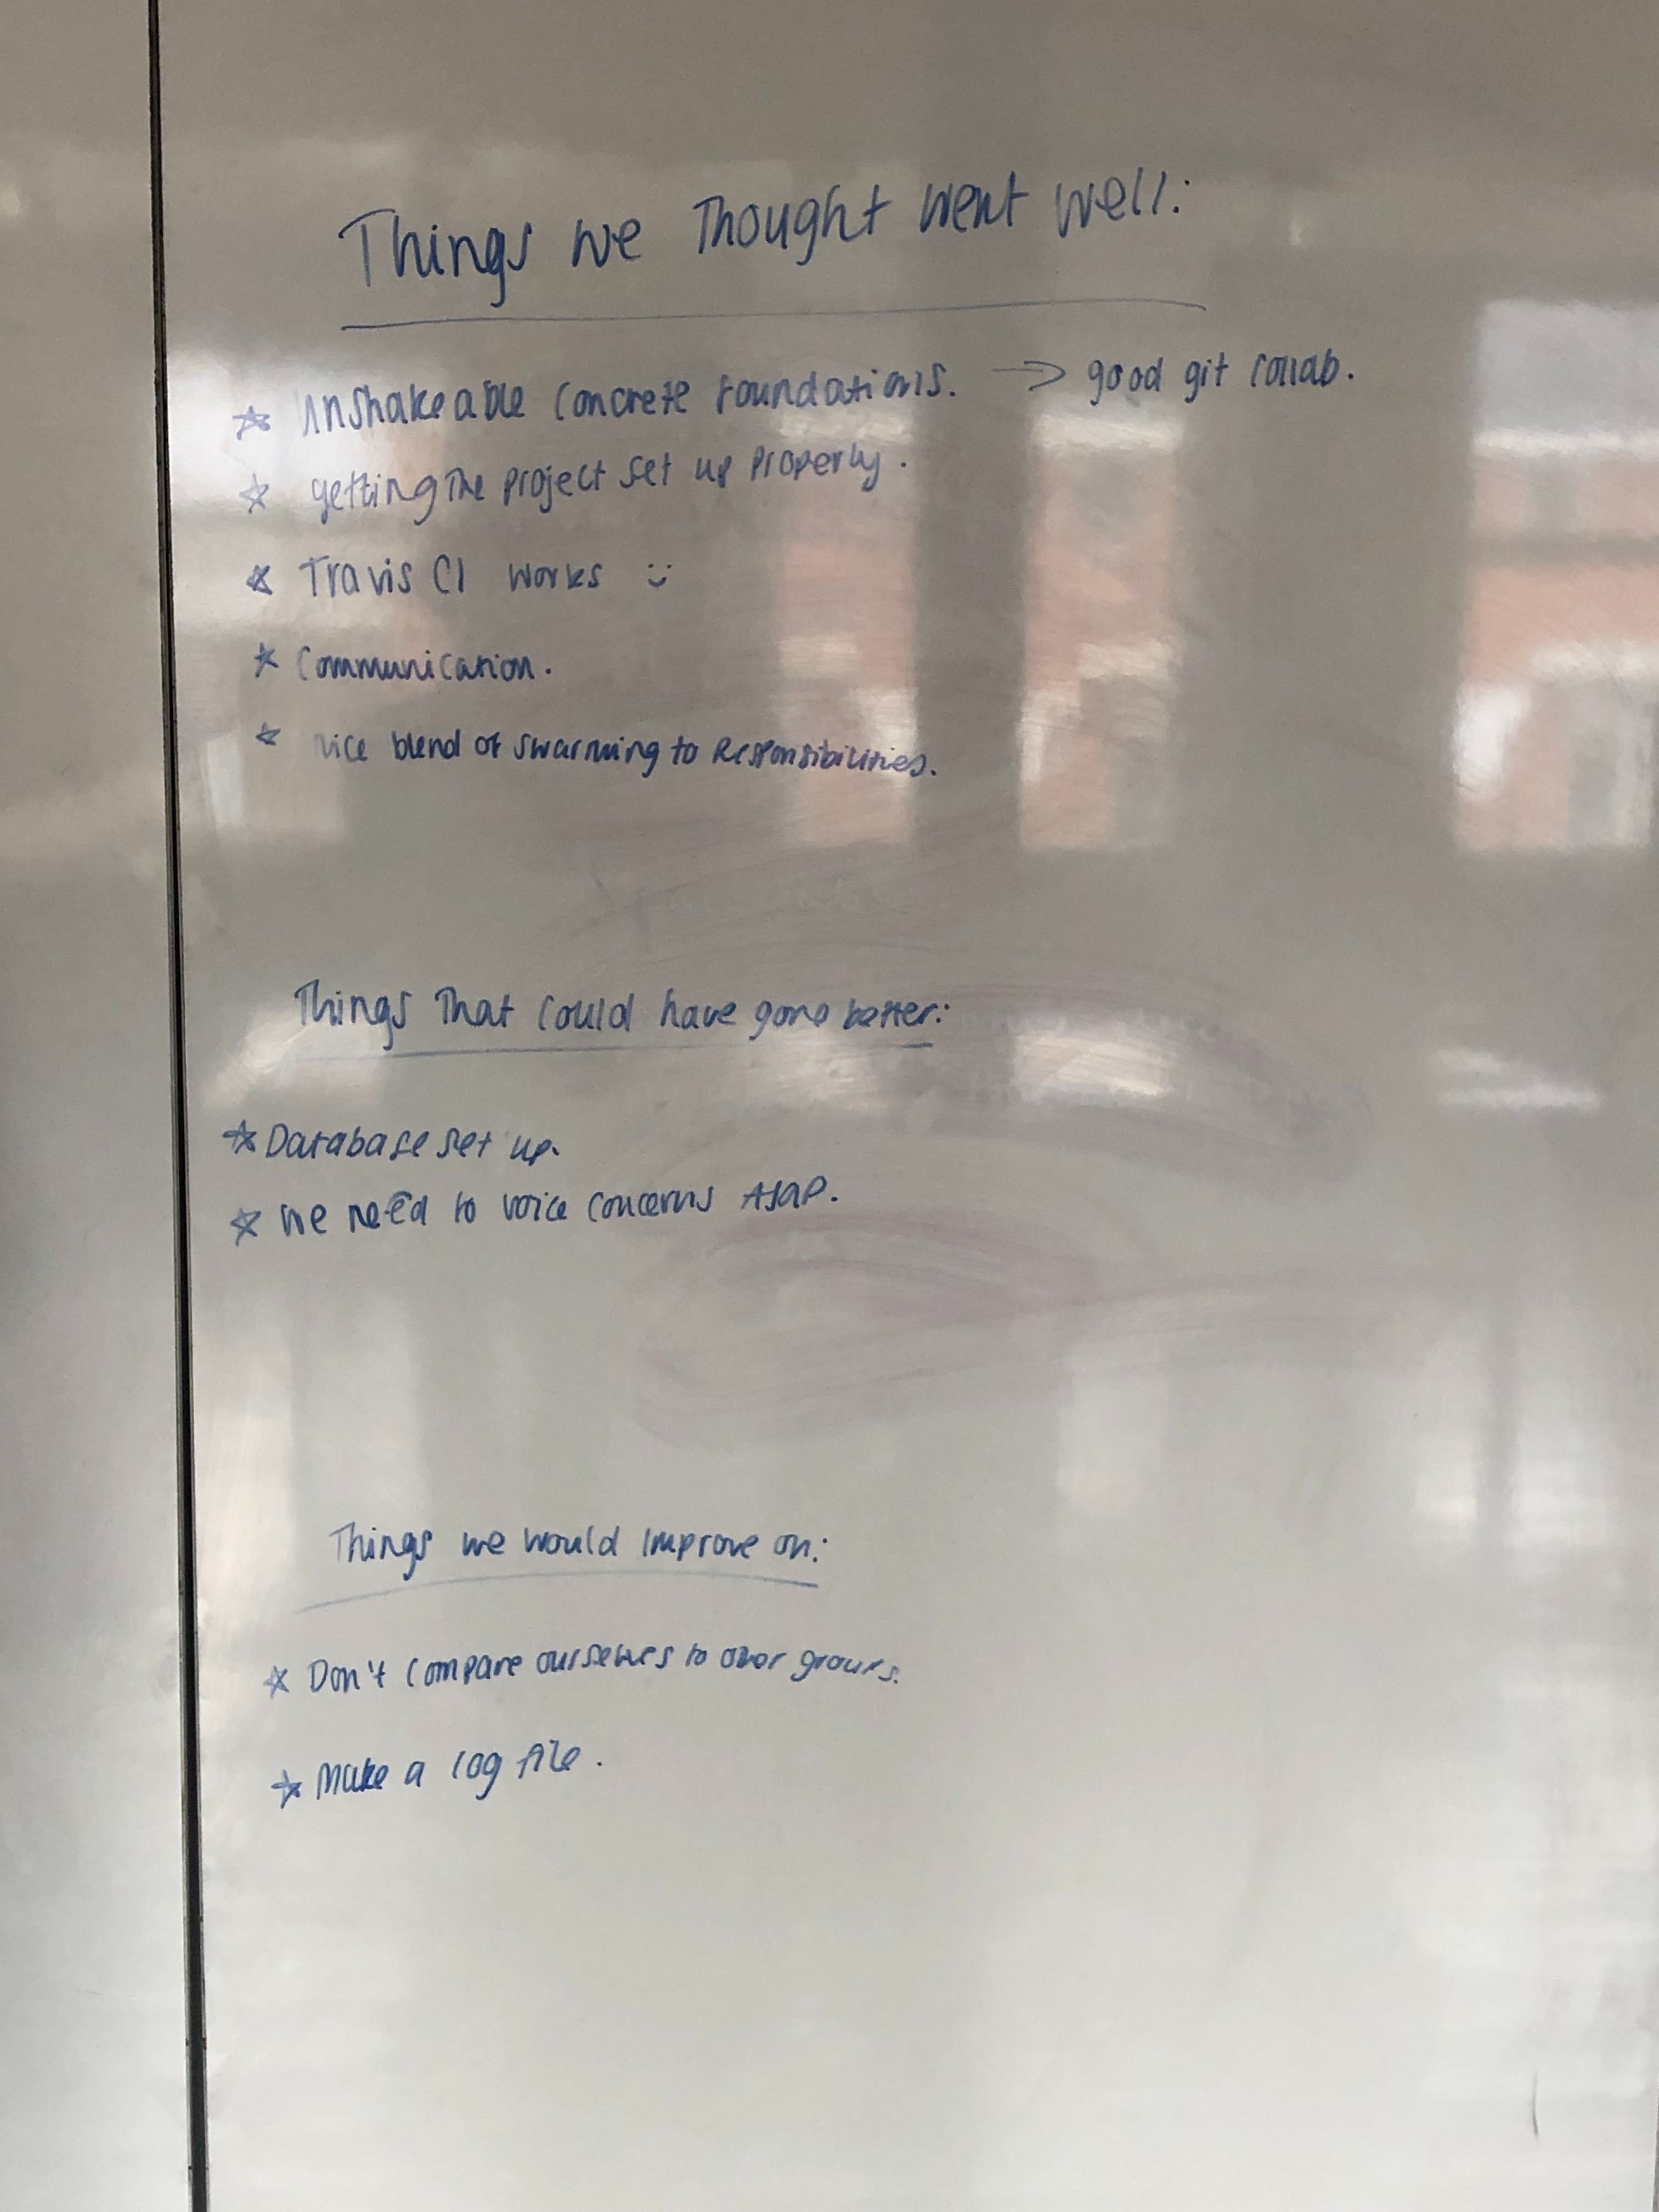 Things we Thought went well:
* Unshakeable concrete foundations. → good git collab.
* getting the project set up properly.
* Travis CI works :)
* Communication.
* nice blend of swarming to Responsibilities.
Things That could have gone better:
* Database set up.
* We need to voice concerns ASAP.
Things we would improve on:
* Don't compare ourselves to other groups.
* Make a log file.